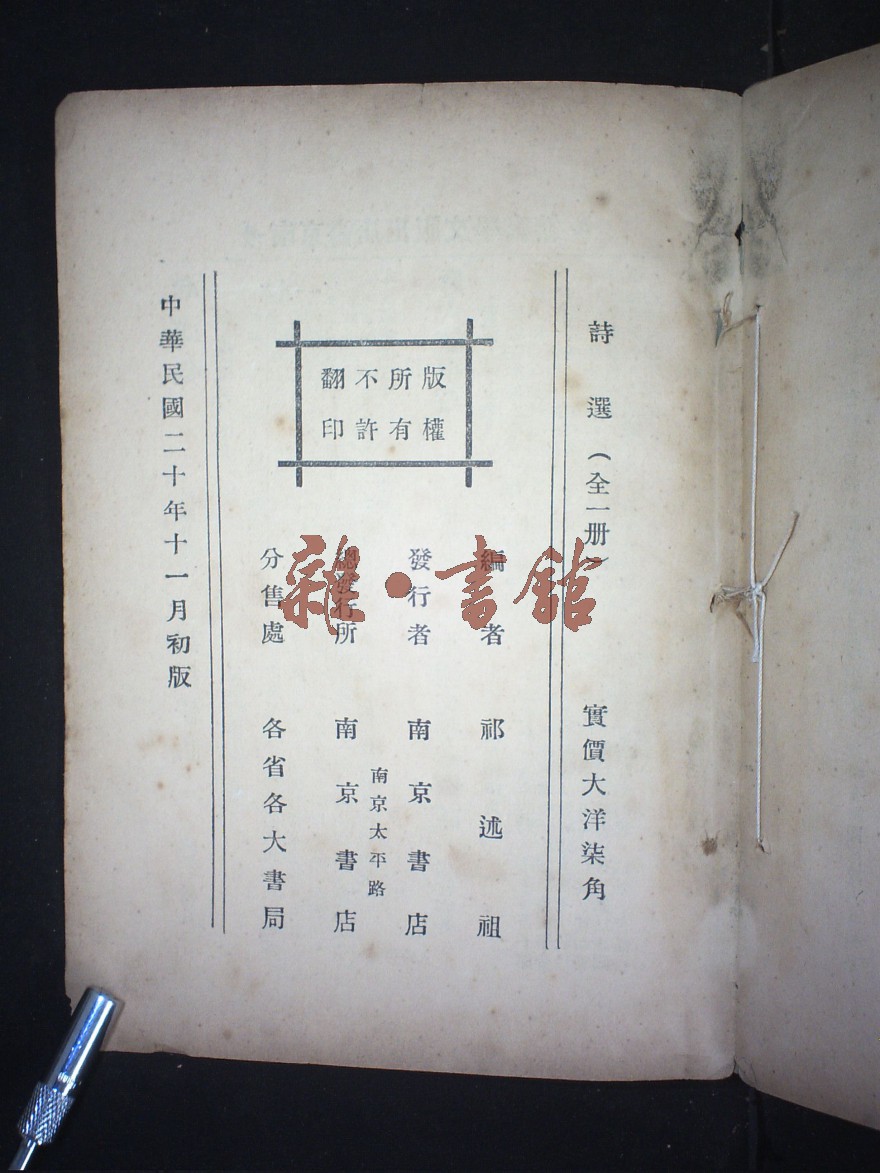 詩選（全一册）
實價大洋柒角
版權
所有
不許
翻印
編者 祁述祖
發行者 南京書店
南京太平路
總發行所 南京書店
分售處 各省各大書局
中華民國二十年十一月初版
雜·書館